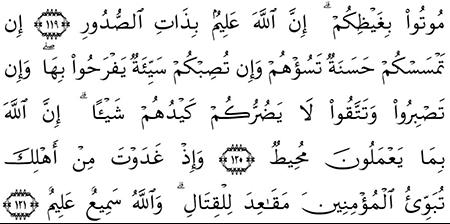 مُوتُوا۟ بِغَيْظِكُمْ ۗ إِنَّ ٱللَّهَ عَلِيمٌۢ بِذَاتِ ٱلصُّدُورِ ﴿١١٩﴾ إِن
تَمْسَسْكُمْ حَسَنَةٌ تَسُؤْهُمْ وَإِن تُصِبْكُمْ سَيِّئَةٌ يَفْرَحُوا۟ بِهَا ۖ وَإِن
تَصْبِرُوا۟ وَتَتَّقُوا۟ لَا يَضُرُّكُمْ كَيْدُهُمْ شَيْـًٔا ۗ إِنَّ ٱللَّهَ
بِمَا يَعْمَلُونَ مُحِيطٌ ﴿١٢٠﴾ وَإِذْ غَدَوْتَ مِنْ أَهْلِكَ
تُبَوِّئُ ٱلْمُؤْمِنِينَ مَقَـٰعِدَ لِلْقِتَالِ ۗ وَٱللَّهُ سَمِيعٌ عَلِيمٌ ﴿١٢١﴾